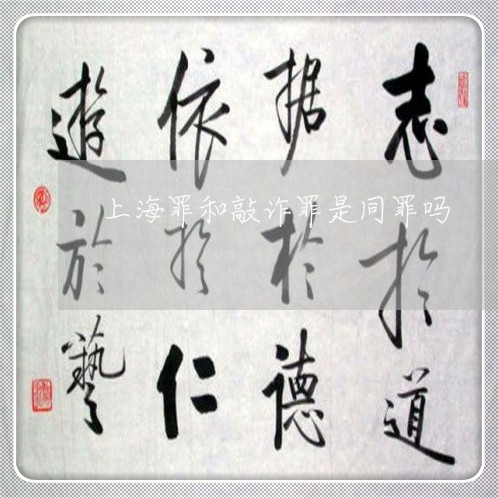 志於道
据於德
依於仁
遊於藝
上海罪和敲诈罪是同罪吗